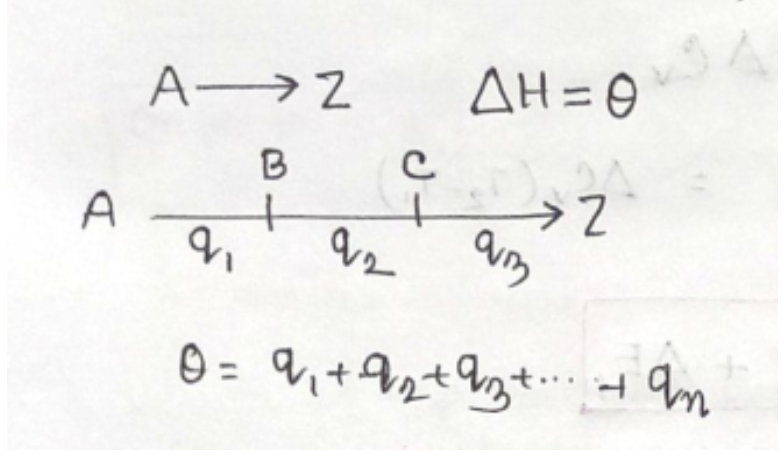 A → Z ΔH = θ
B C
A → Z
q₁ q₂ q₃
θ = q₁ + q₂ + q₃ + ... + qₙ